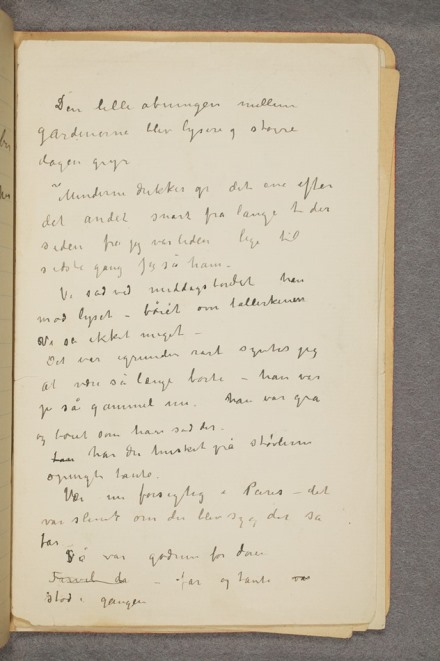 Den lille åbningen mellem
gardinerne blev lysere og større
dagen gryr
Minderne dukker op det ene efter
det andet snart fra lange tider
siden fra jeg var liden lige til
sidste gang jeg så ham -
Vi sad ved middagsbordet han
mod lyset - bøiet om tallerkenen
Vi sa ikke meget -
Det var igrunden rart syntes jeg
at være så længe borte - han var
jo så gammel nu. han var grå
og bøiet som han sad der.
har du husket på støvlerne
spurgte tante.
Vær nu forsigtig i Paris - det
var slemt om du blev syg der sa
far
Så var godt for dem
- far og tante
stod i gangen